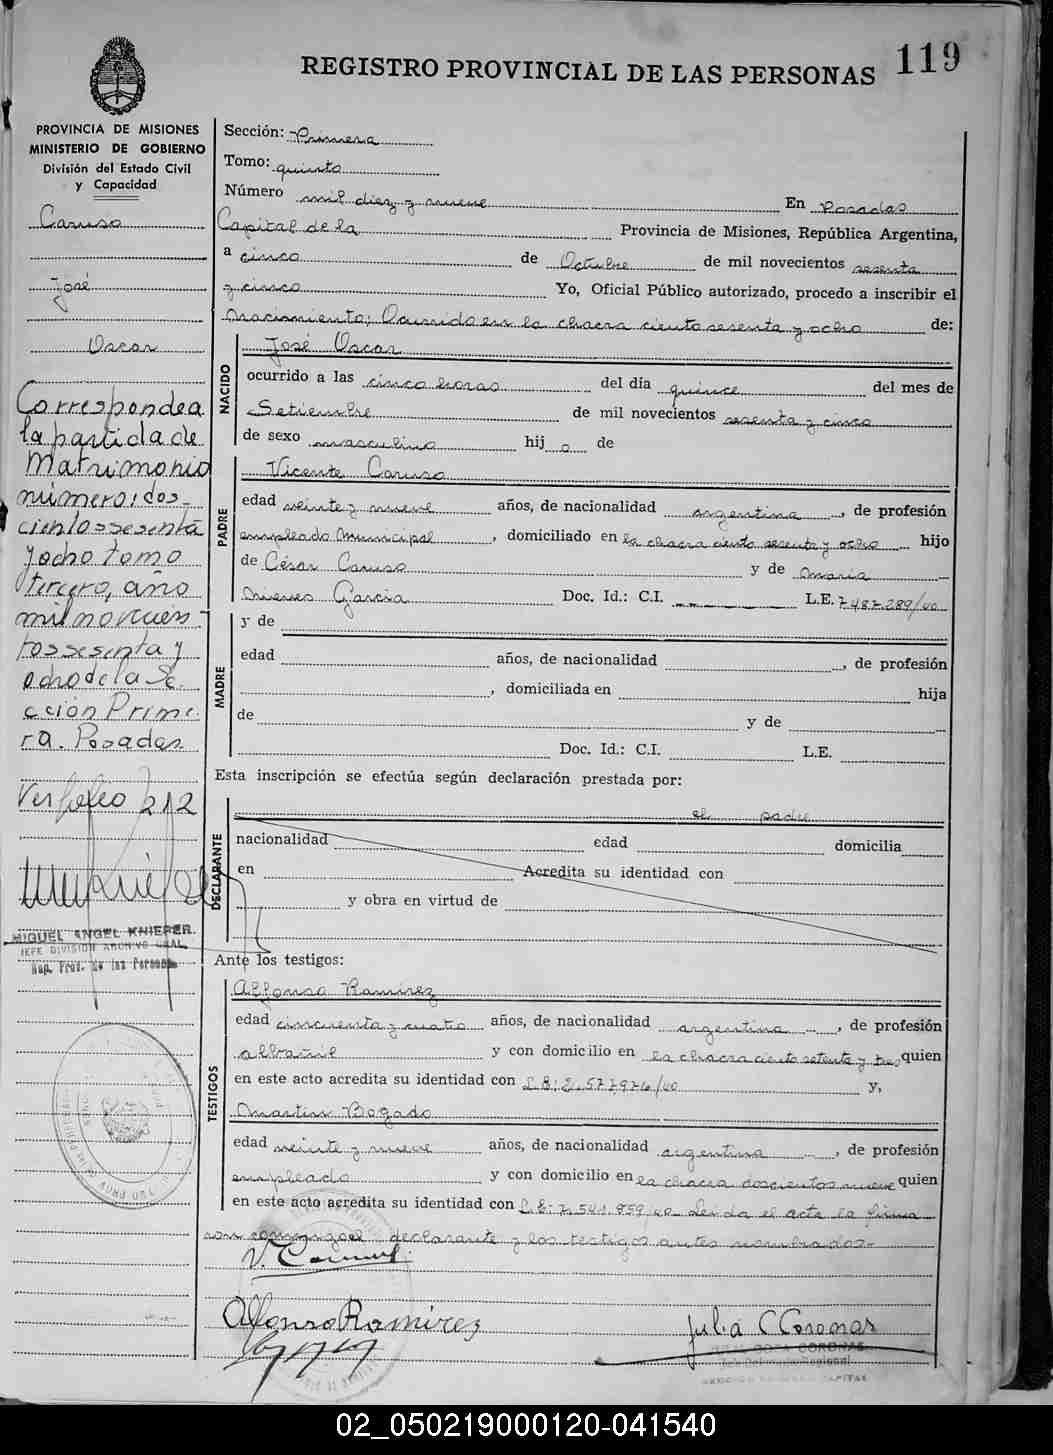 119
REGISTRO PROVINCIAL DE LAS PERSONAS
PROVINCIA DE MISIONES
MINISTERIO DE GOBIERNO
División del Estado Civil
y Capacidad
Caruso
José
Oscar
Corresponde a
la partida de
Matrimonio
número: dos-
cientos sesenta
y ocho tomo
tercero, año
mil novecien-
tos sesenta y
ocho de la Se-
cción Prime-
ra. Posadas
Ver folio 212
MIGUEL ANGEL KNIEPER
JEFE DIVISION ARCHIVO GRAL.
Reg. Prov. de las Personas
Sección: Primera
Tomo: quinto
Número mil diez y nueve En Posadas
Capital de la Provincia de Misiones, República Argentina,
a cinco de Octubre de mil novecientos sesenta
y cinco Yo, Oficial Público autorizado, procedo a inscribir el
Nacimiento: Ocurrido en la chacra ciento sesenta y ocho de:
NACIDO
José Oscar
ocurrido a las cinco horas del día quince del mes de
Setiembre de mil novecientos sesenta y cinco
de sexo masculino hij o de
PADRE
Vicente Caruso
edad veinte y nueve años, de nacionalidad argentina, de profesión
empleado Municipal, domiciliado en la chacra ciento sesenta y ocho hijo
de César Caruso y de María
Nieves García Doc. Id.: C.I. L.E. 7.487.289/40
MADRE
y de
edad años, de nacionalidad , de profesión
, domiciliada en hija
de y de
Doc. Id.: C.I. L.E.
Esta inscripción se efectúa según declaración prestada por:
DECLARANTE
el padre
nacionalidad edad domicilia
en Acredita su identidad con
y obra en virtud de
Ante los testigos:
TESTIGOS
Alfonso Ramirez
edad cincuenta y cuatro años, de nacionalidad argentina, de profesión
albañil y con domicilio en la chacra ciento setenta y tres quien
en este acto acredita su identidad con L.E: 2.577.976/40 y,
Martin Bogado
edad veinte y nueve años, de nacionalidad argentina, de profesión
empleado y con domicilio en la chacra doscientos nueve quien
en este acto acredita su identidad con L.E: 7.541.959/40 Leida el acta la firma
ron conmigo el declarante y los testigos antes nombrados.-
Alfonso Ramirez
Julia C Coronas
02_050219000120-041540